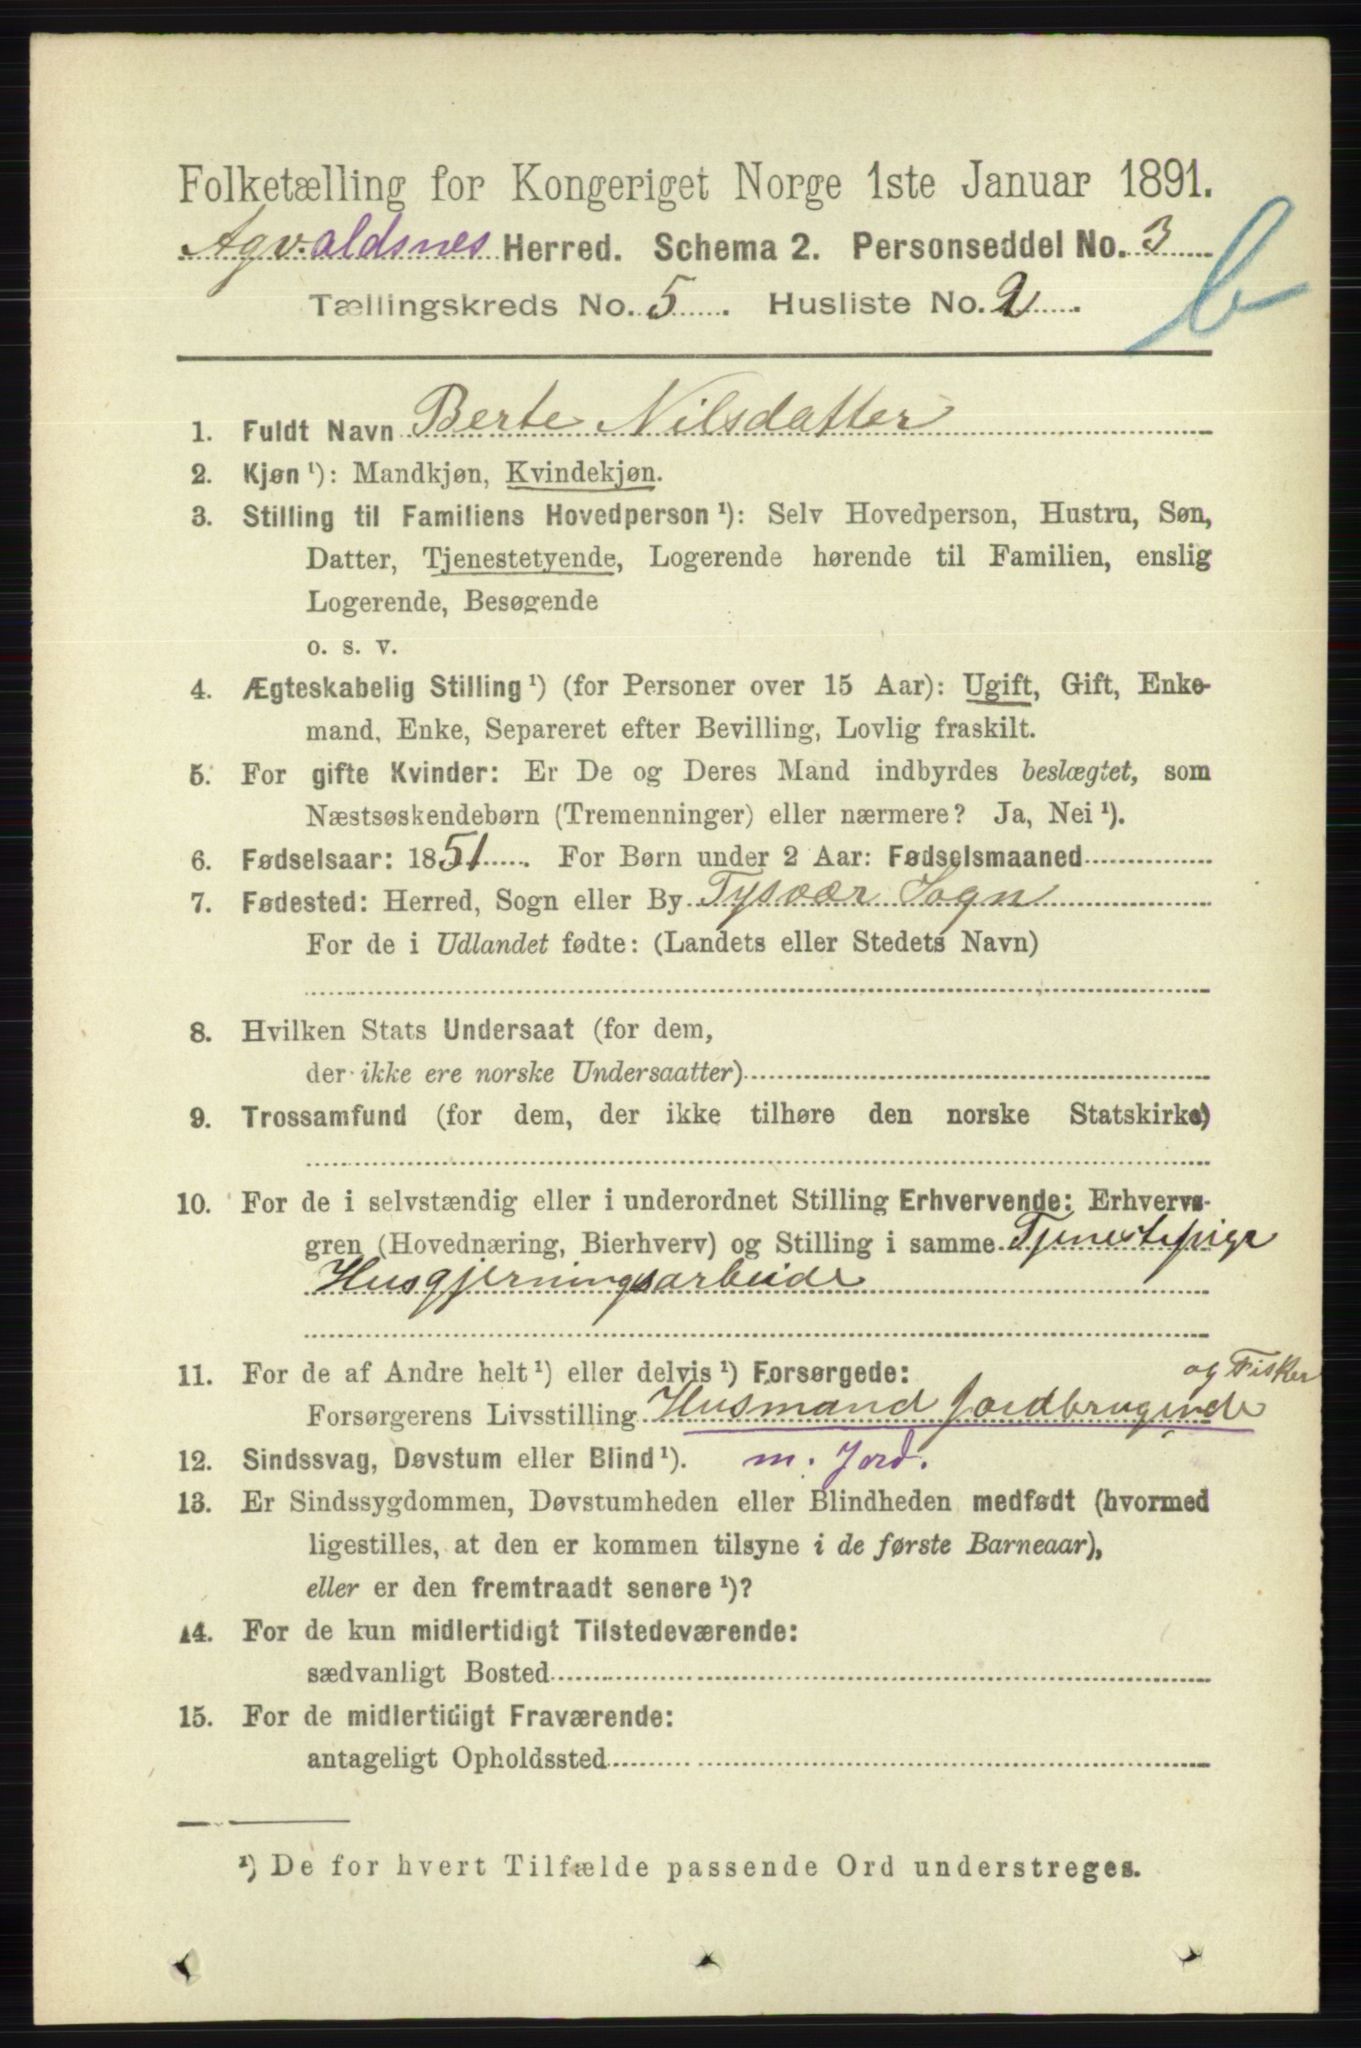 Folketælling for Kongeriget Norge 1ste Januar 1891.
Agv.aldsnes Herred. Schema 2. Personseddel No. 3
b
Tællingskreds No. 5. Husliste No. 2.
1. Fuldt Navn Berte Nilsdatter
2. Kjøn ¹): Mandkjøn, Kvindekjøn.
3. Stilling til Familiens Hovedperson ¹): Selv Hovedperson, Hustru, Søn,
Datter, Tjenestetyende, Logerende hørende til Familien, enslig
Logerende, Besøgende
o. s. v.
4. Ægteskabelig Stilling ¹) (for Personer over 15 Aar): Ugift, Gift, Enke-
mand, Enke, Separeret efter Bevilling, Lovlig fraskilt.
5. For gifte Kvinder: Er De og Deres Mand indbyrdes beslægtet, som
Næstsøskendebørn (Tremenninger) eller nærmere? Ja, Nei ¹).
6. Fødselsaar: 1851. For Børn under 2 Aar: Fødselsmaaned
7. Fødested: Herred, Sogn eller By Tysvær Sogn
For de i Udlandet fødte: (Landets eller Stedets Navn)
8. Hvilken Stats Undersaat (for dem,
der ikke ere norske Undersaatter)
9. Trossamfund (for dem, der ikke tilhøre den norske Statskirke)
10. For de i selvstændig eller i underordnet Stilling Erhvervende: Erhvervs-
gren (Hovednæring, Bierhverv) og Stilling i samme Tjenestepige
Husgjerningsarbeide
11. For de af Andre helt ¹) eller delvis ¹) Forsørgede: og Fisker
Forsørgerens Livsstilling Husmand Jordbrugende
12. Sindssvag, Døvstum eller Blind ¹). m. Jord.
13. Er Sindssygdommen, Døvstumheden eller Blindheden medfødt (hvormed
ligestilles, at den er kommen tilsyne i de første Barneaar),
eller er den fremtraadt senere ¹)?
14. For de kun midlertidigt Tilstedeværende:
sædvanligt Bosted
15. For de midlertidigt Fraværende:
antageligt Opholdssted
¹) De for hvert Tilfælde passende Ord understreges.